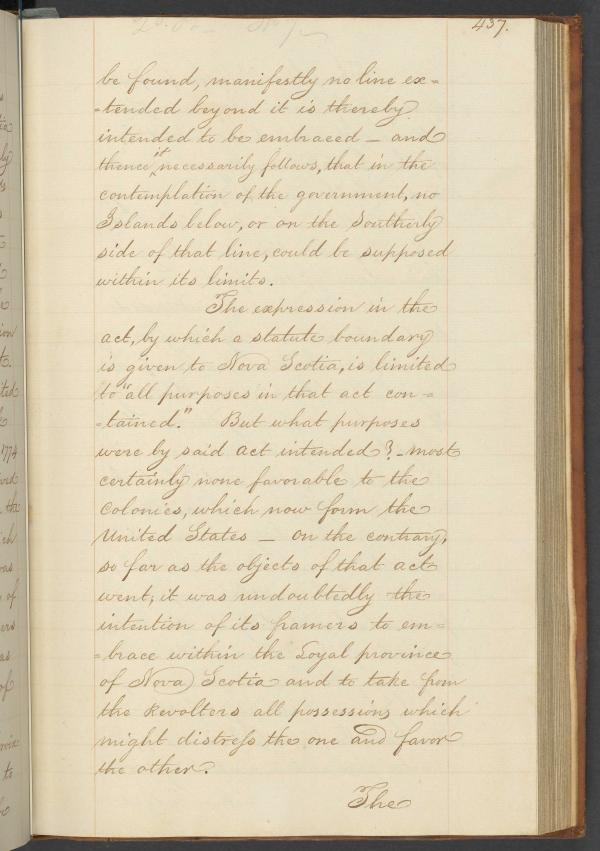 437.
be found, manifestly no line ex=
=tended beyond it is thereby
intended to be embraced — and
thence it necessarily follows, that in the
contemplation of the government, no
Islands below, or on the Southerly
side of that line, could be supposed
within its limits.
The expression in the
act, by which a statute boundary
is given to Nova Scotia, is limited
to "all purposes in that act con-=
=tained." But what purposes
were by said act intended? - most
certainly none favorable to the
Colonies, which now form the
United States — on the contrary,
so far as the objects of that act
went, it was undoubtedly the
intention of its framers to em=
=brace within the Loyal province
of Nova Scotia and to take from
the Revolters all possessions, which
might distress the one and favor
the other.
The
1774